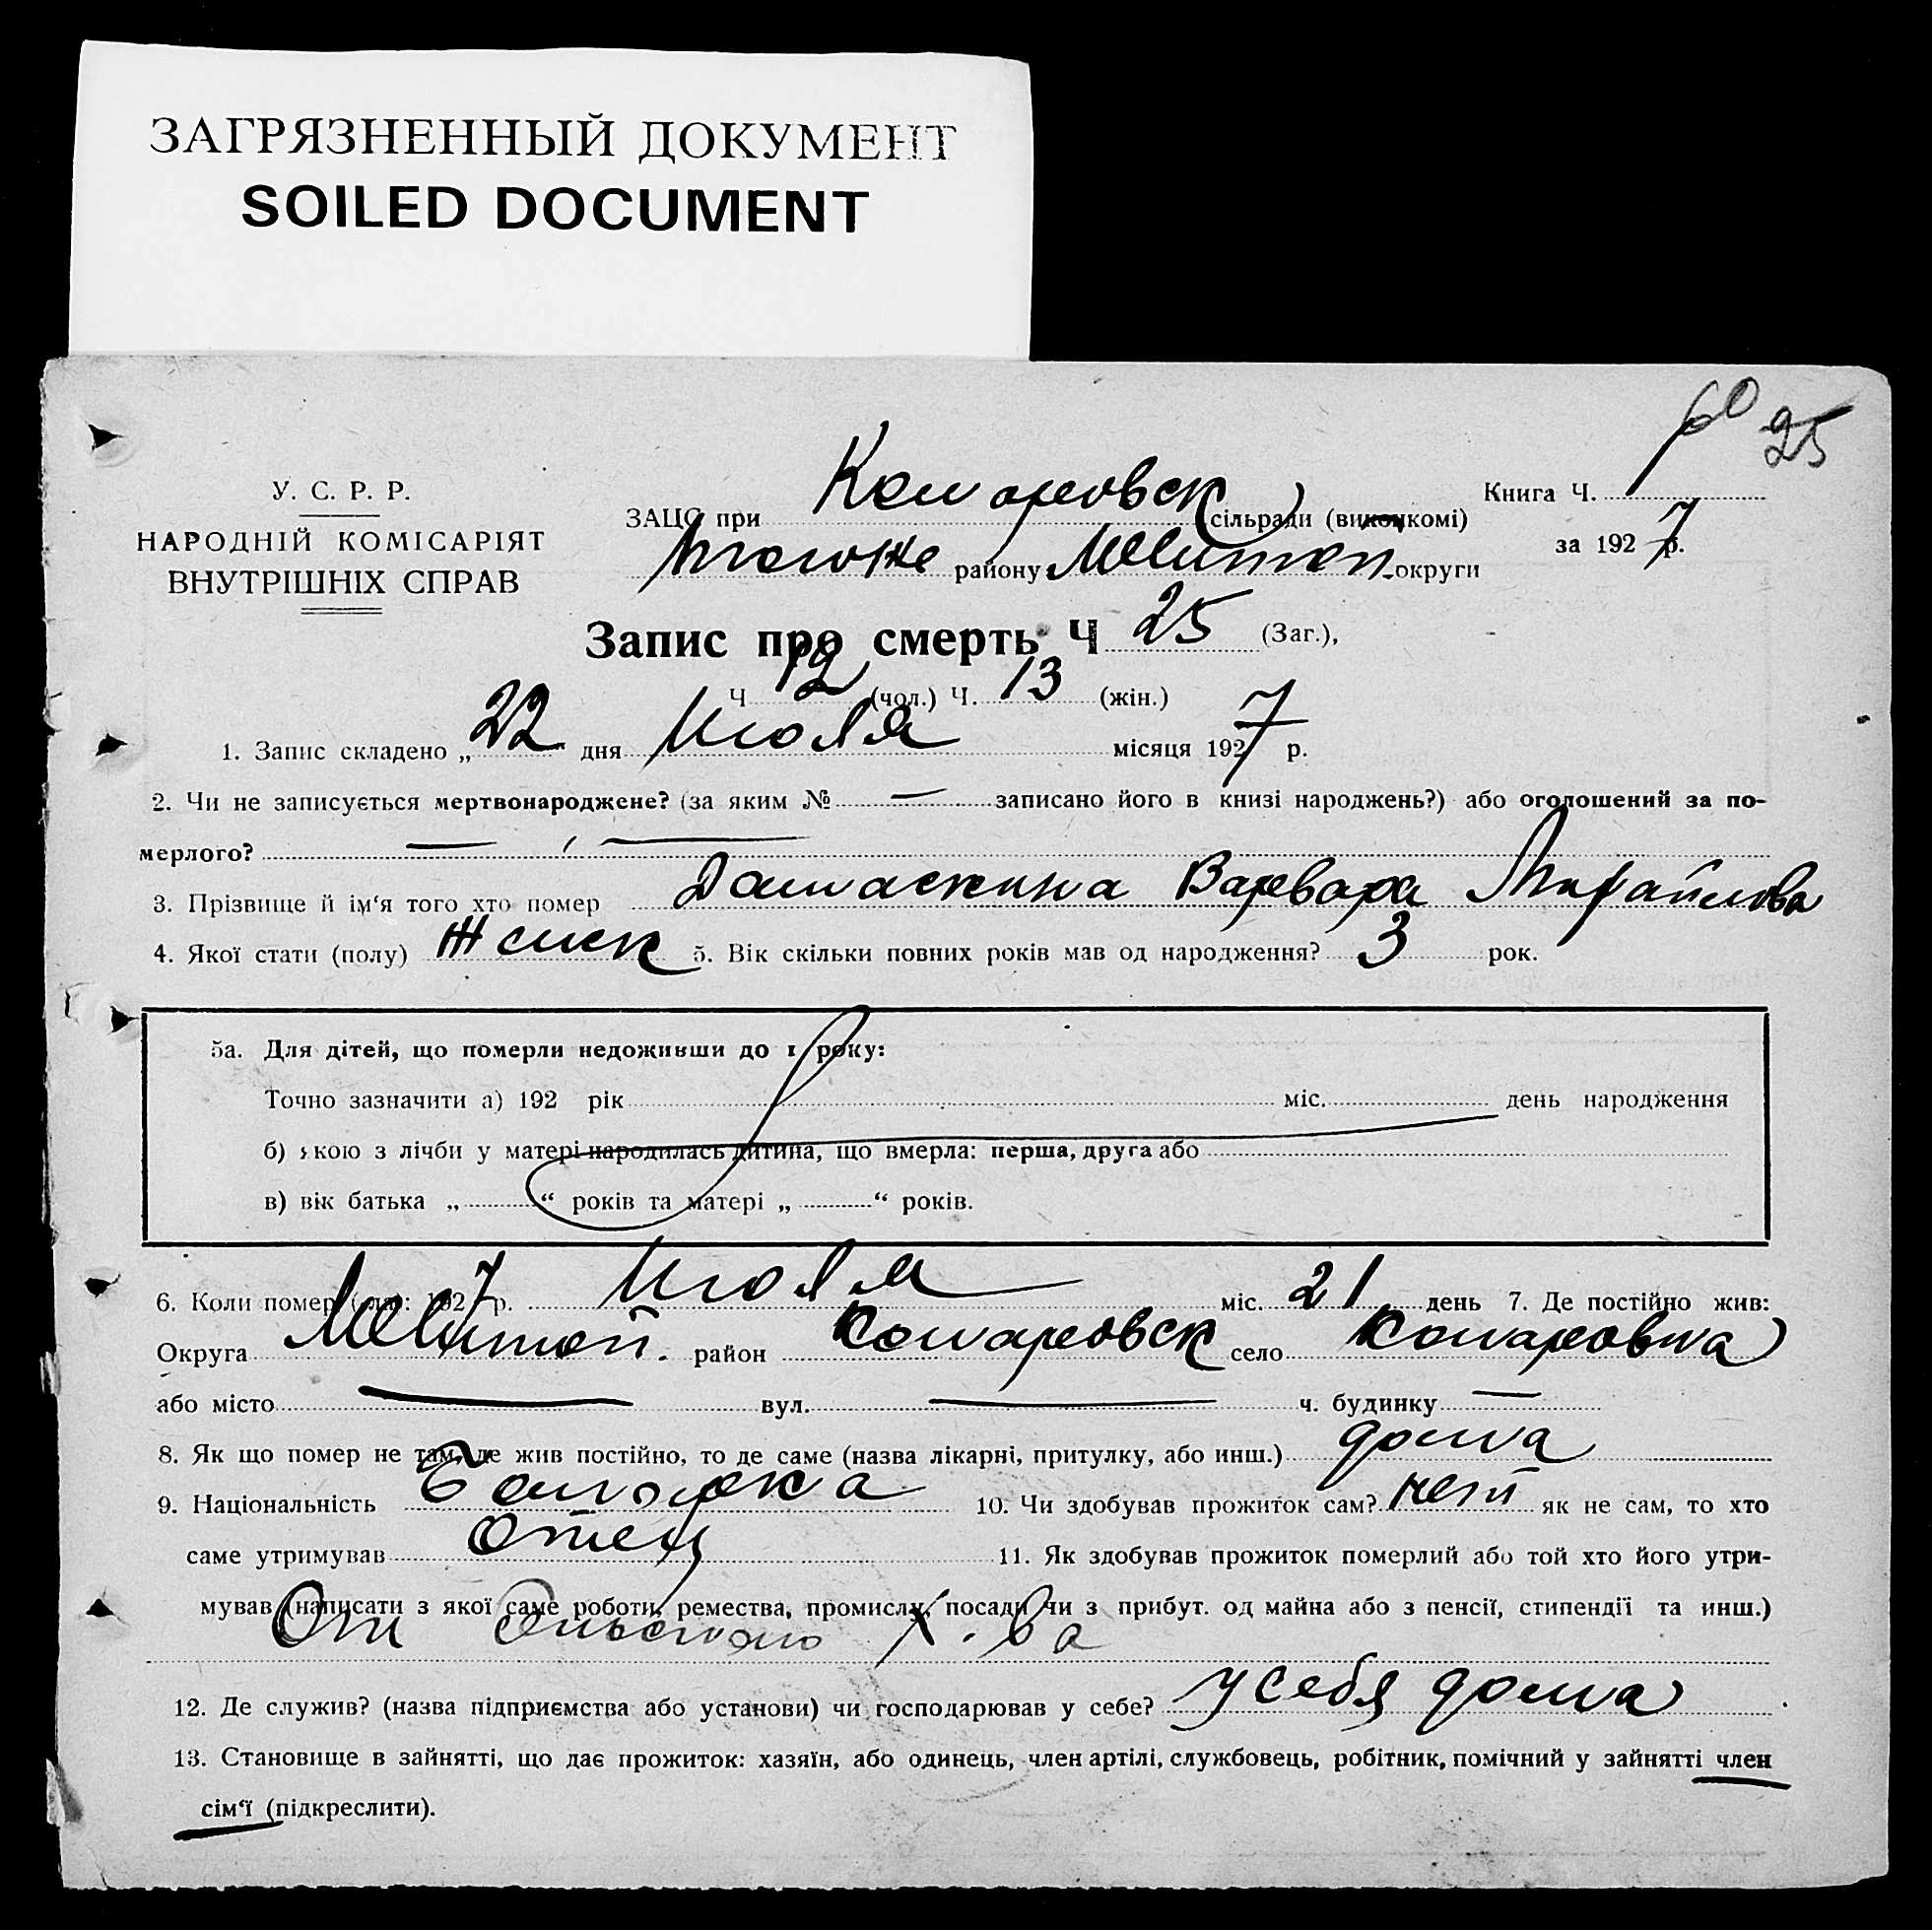 ЗАГРЯЗНЕННЫЙ ДОКУМЕНТ
SOILED DOCUMENT
60 25
У. С. Р. Р.
НАРОДНІЙ КОМІСАРІЯТ
ВНУТРІШНІХ СПРАВ
ЗАЦС при Комаровск сільради (виконкомі)
Книга Ч. 1
району Мелитоп. округи
за 1927 р.
Запис про смерть Ч 25 (Заг.),
Ч 12 (чол.) Ч. 13 (жін.)
1. Запис складено „ 22 дня Июля місяця 1927 р.
2. Чи не записується мертвонароджене? (за яким № — записано його в книзі народжень?) або оголошений за по-
мерлого? — —
3. Прізвище й ім‘я того хто помер Дамаскина Варвара Михайлова
4. Якої стати (полу) Женск 5. Вік скільки повних років мав од народження? 3 рок.
5а. Для дітей, що померли недоживши до 1 року:
Точно зазначити а) 192 рік міс. день народження
б) якою з лічби у матері народилась дитина, що вмерла: перша, друга або
в) вік батька „ “ років та матері „ “ років.
6. Коли помер (ла): 1927 р. Июля міс. 21 день 7. Де постійно жив:
Округа Мелитоп. район Комаровск село Комаровка
або місто — вул. — ч. будинку —
8. Як що помер не там, де жив постійно, то де саме (назва лікарні, притулку, або инш.) дома
9. Національність Болгарка 10. Чи здобував прожиток сам? нет як не сам, то хто
саме утримував Отец 11. Як здобував прожиток померлий або той хто його утри-
мував (написати з якої саме роботи, ремества, промислу, посади чи з прибут. од майна або з пенсії, стипендії та инш.)
От Сельского Х-ва
12. Де служив? (назва підприємства або установи) чи господарював у себе? у себя дома
13. Становище в зайнятті, що дає прожиток: хазяїн, або одинець, член артілі, службовець, робітник, помічний у зайнятті член
сім‘ї (підкреслити).